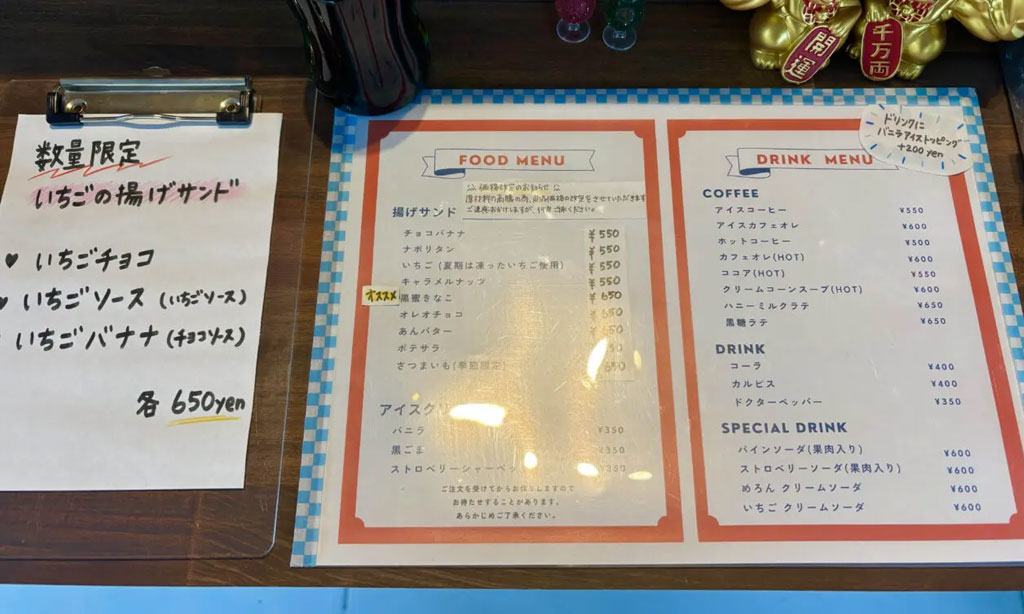 開運
千万両
数量限定
いちごの揚げサンド
♥ いちごチョコ
♥ いちごソース (いちごソース)
いちごバナナ (チョコソース)
各 650yen
FOOD MENU
価格改定のお知らせ
原材料の高騰の為、商品価格の改定をさせていただきます
ご迷惑おかけしますが、
揚げサンド
チョコバナナ ¥550
ナポリタン ¥550
いちご (夏期は凍ったいちご使用) ¥550
キャラメルナッツ ¥550
オススメ 黒蜜きなこ ¥650
オレオチョコ ¥650
あんバター ¥650
ポテサラ
さつまいも(季節限定) ¥650
アイスクリ
バニラ ¥350
黒ごま ¥350
ストロベリーシャーベッ ¥350
ご注文を受けてからお作りしますので
お待たせすることがあります。
あらかじめご了承ください。
DRINK MENU
ドリンクに
バニラアイストッピング
+200yen
COFFEE
アイスコーヒー ¥550
アイスカフェオレ ¥600
ホットコーヒー ¥500
カフェオレ(HOT) ¥600
ココア(HOT) ¥550
クリームコーンスープ(HOT) ¥600
ハニーミルクラテ ¥650
黒糖ラテ ¥650
DRINK
コーラ ¥400
カルピス ¥400
ドクターペッパー ¥350
SPECIAL DRINK
パインソーダ(果肉入り) ¥600
ストロベリーソーダ(果肉入り) ¥600
めろん クリームソーダ ¥600
いちご クリームソーダ ¥600